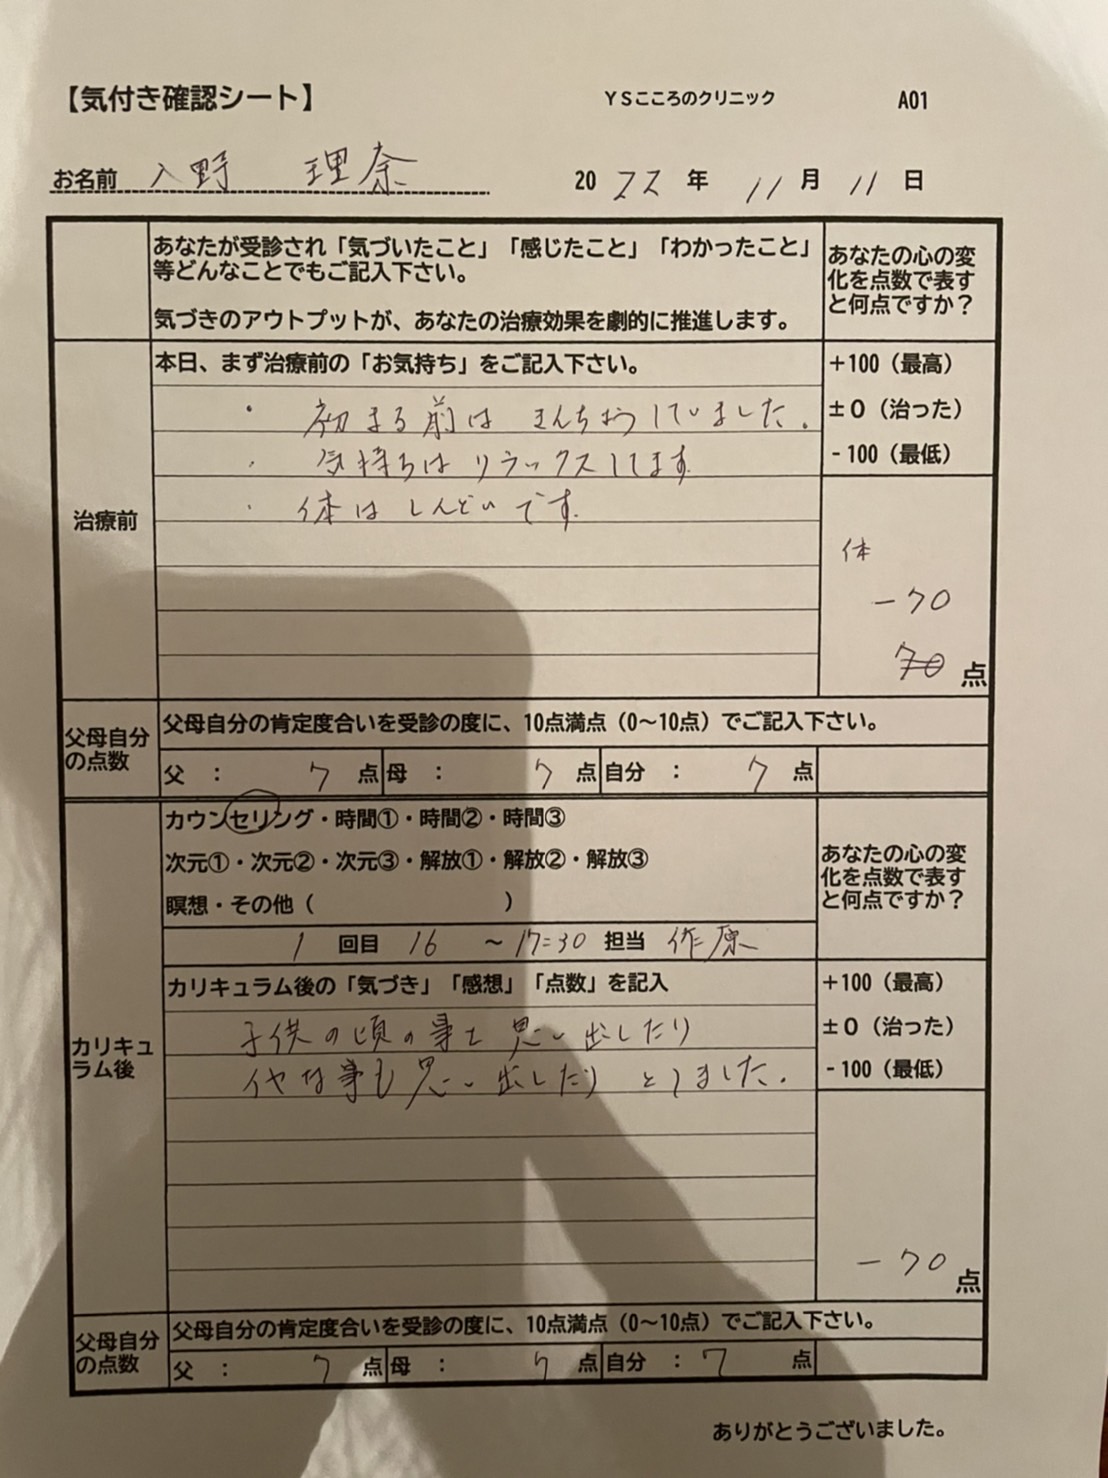 【気付き確認シート】 YSこころのクリニック A01
お名前 入野 理奈 2022年 11月 11日
あなたが受診され「気づいたこと」「感じたこと」「わかったこと」
等どんなことでもご記入下さい。
気づきのアウトプットが、あなたの治療効果を劇的に推進します。
あなたの心の変
化を点数で表す
と何点ですか？
治療前
本日、まず治療前の「お気持ち」をご記入下さい。
・ 初まる前は きんちょうしていました。
・ 気持ちはリラックスしてます
・ 体はしんどいです。
+100（最高）
±0（治った）
-100（最低）
体
-70
70 点
父母自分
の点数
父母自分の肯定度合いを受診の度に、10点満点（0〜10点）でご記入下さい。
父 ： 7 点 母 ： 7 点 自分 ： 7 点
カウンセリング・時間①・時間②・時間③
次元①・次元②・次元③・解放①・解放②・解放③
瞑想・その他（ ）
1 回目 16 〜17:30 担当 作原
あなたの心の変
化を点数で表す
と何点ですか？
カリキュ
ラム後
カリキュラム後の「気づき」「感想」「点数」を記入
子供の頃の事を思い出したり
イヤな事も思い出したり としました。
+100（最高）
±0（治った）
-100（最低）
-70 点
父母自分
の点数
父母自分の肯定度合いを受診の度に、10点満点（0〜10点）でご記入下さい。
父 ： 7 点 母 ： 7 点 自分 ： 7 点
ありがとうございました。